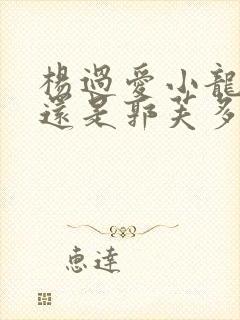 楊過愛小龍
還是郭芙多
恵達